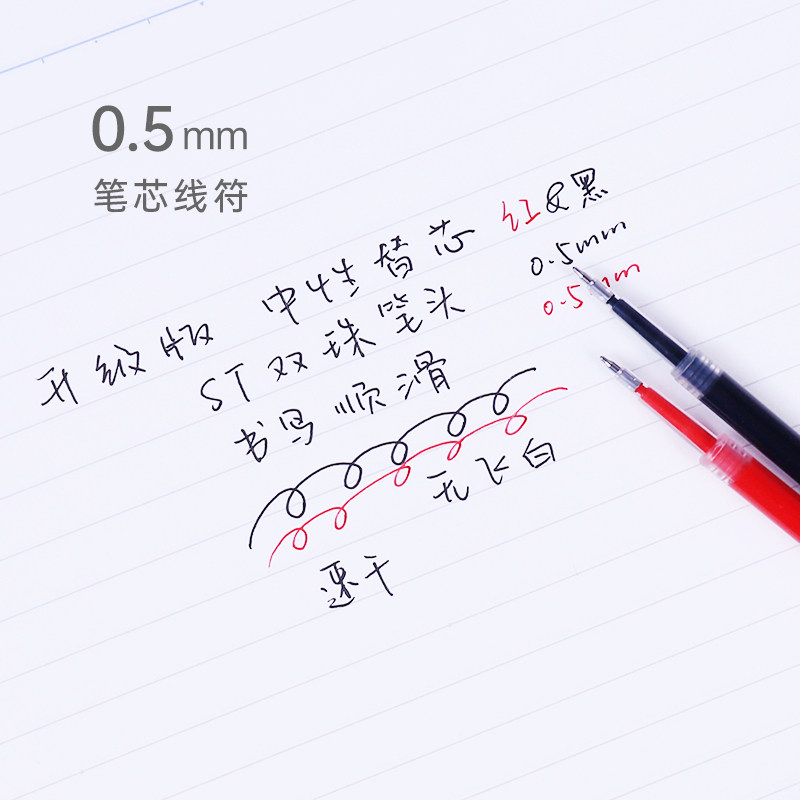 0.5mm
笔芯线符
升级版 中性替芯 红&黑
0.5mm
0.5mm
ST双珠笔头
书写顺滑
无飞白
速干